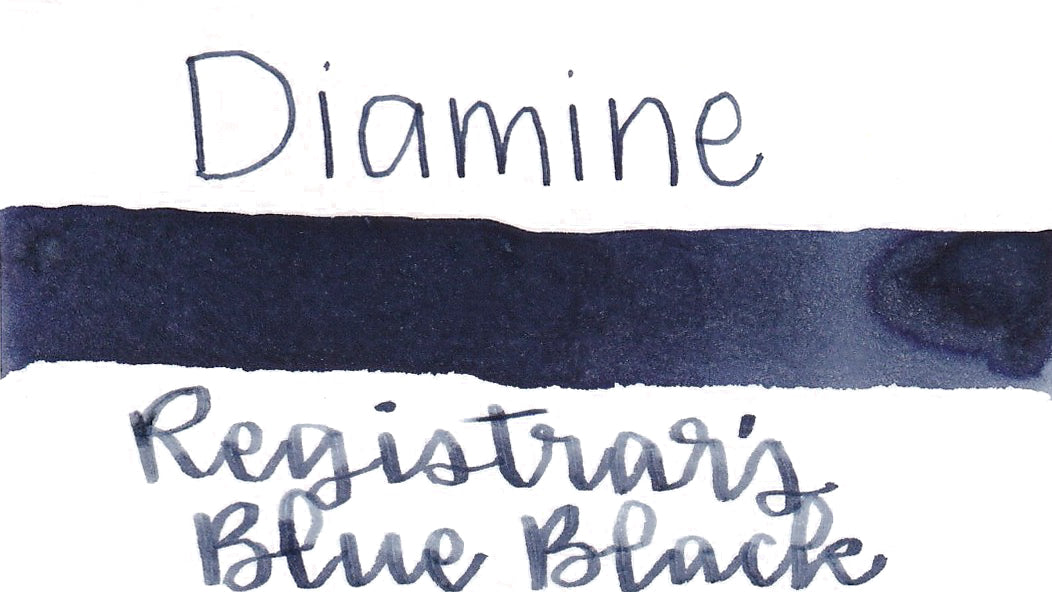 Diamine
Registrar's
Blue Black